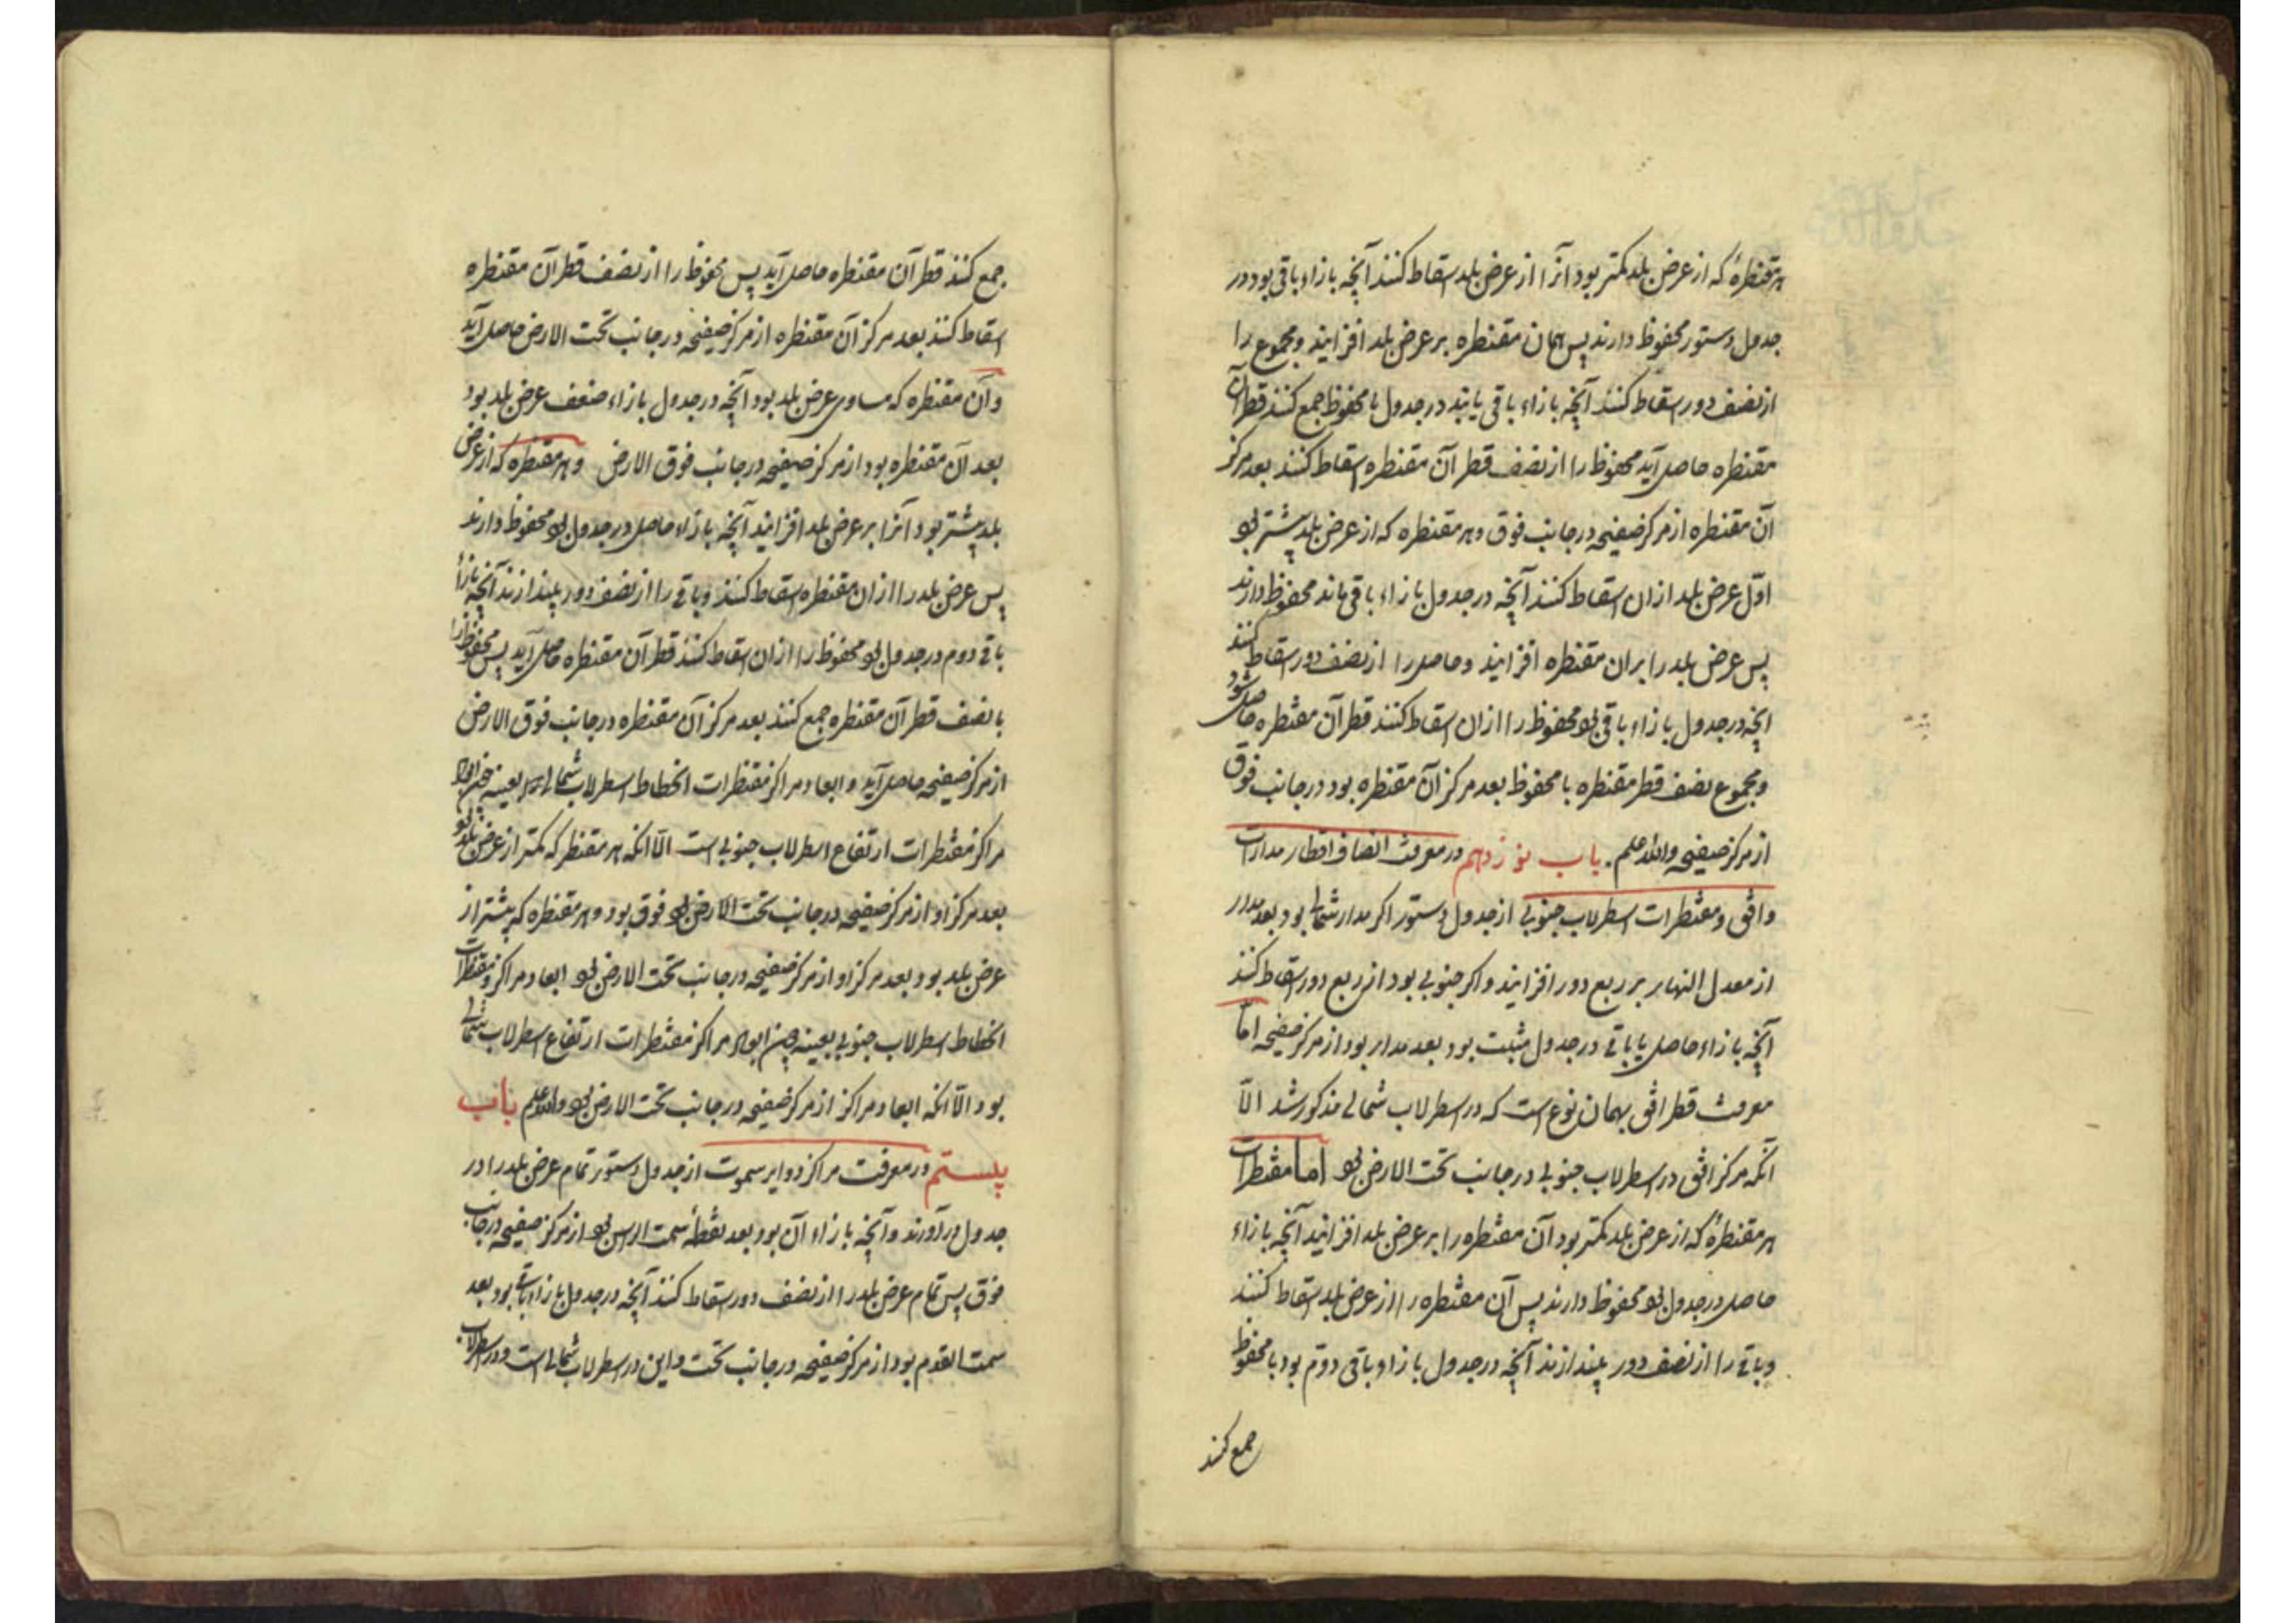 هر مقنطرهٔ که از عرض بلد کمتر بود آنرا از عرض بلد اسقاط کنند آنچه بازاء باقی بود در
جدول دستور محفوظ دارند پس همان مقنطره بر عرض بلد افزایند و مجموع را
از نصف دور اسقاط کنند آنچه بازاء باقی یابند در جدول با محفوظ جمع کنند قطر آن
مقنطره حاصل آید محفوظ را از نصف قطر آن مقنطره اسقاط کنند بعد مرکز
آن مقنطره از مرکز صفیحه در جانب فوق و هر مقنطره که از عرض بلد بیشتر بود
اوّل عرض بلد ازان اسقاط کنند آنچه در جدول بازاء باقی باند محفوظ دارند
پس عرض بلد را بران مقنطره افزایند و حاصل را از نصف دور اسقاط کنند
انچه در جدول بازاء باقی بود محفوظ را ازان اسقاط کنند قطر آن مقنطره حاصل شود
و مجموع نصف قطر مقنطره با محفوظ بعد مرکز آن مقنطره بود در جانب فوق
از مرکز صفیحه والله اعلم. باب نوزدهم در معرفت انصاف اقطار مدارات
وافق و مقنطرات اسطرلاب جنوبی از جدول دستور اکر مدار شمالی بود بعد مدار
از معدل النهار بر ربع دور افزایند و اکر جنوبی بود از ربع دور اسقاط کنند
آنچه بازاء حاصل یا باقی در جدول مثبت بود بعد مدار بود از مرکز صفیحه امّا
معرفت قطر افق بهمان نوع است که در اسطرلاب شمالی مذکور شد الّا
آنکه مرکز افق در اسطرلاب جنوبی در جانب تحت الارض بود اما مقنطرات
هر مقنطرهٔ که از عرض بلد کمتر بود آن مقنطره را بر عرض بلد افزایند آنچه بازاء
حاصل در جدول بود محفوظ دارند پس آن مقنطره را از عرض بلد اسقاط کنند
و باقی را از نصف دور بیندازند آنچه در جدول بازاء باقی دوّم بود با محفوظ
جمع کنند
جمع کنند قطر آن مقنطره حاصل آید پس محفوظ را از نصف قطر آن مقنطره
اسقاط کنند بعد مرکز آن مقنطره از مرکز صفیحه در جانب تحت الارض حاصل آید
و آن مقنطره که مساوی عرض بلد بود آنچه در جدول بازاء ضعف عرض بلد بود
بعد آن مقنطره بود از مرکز صفیحه در جانب فوق الارض و هر مقنطره که از عرض
بلد بیشتر بود آنرا بر عرض بلد افزایند آنچه بازاء حاصل در جدول بود محفوظ دارند
پس عرض بلد را ازان مقنطره اسقاط کنند و باقی را از نصف دور بیندازند آنچه بازاء
باقی دوم در جدول بود محفوظ را ازان اسقاط کنند قطر آن مقنطره حاصل آید پس محفوظ را
با نصف قطر آن مقنطره جمع کنند بعد مرکز آن مقنطره در جانب فوق الارض
از مرکز صفیحه حاصل آید و ابعاد مراکز مقنطرات انحطاط اسطرلاب شمالی بعینه چون ابعاد
مراکز مقنطرات ارتفاع اسطرلاب جنوبی است الّا انکه هر مقنطر که کمتر از عرض بلد بود
بعد مرکز او از مرکز صفیحه در جانب تحت الارض بود فوق بود و هر مقنطره که بیشتر از
عرض بلد بود بعد مرکز او از مرکز صفیحه در جانب تحت الارض بود ابعاد مراکز مقنطرات
انحطاط اسطرلاب جنوبی بعینه چون ابعاد مراکز مقنطرات ارتفاع اسطرلاب شمالی
بود الّا انکه ابعاد مراکز از مرکز صفیحه در جانب تحت الارض بود والله اعلم باب
بیستم در معرفت مراکز دوایر سموت از جدول دستور تمام عرض بلد را در
جدول در آورند و آنچه بازاء آن بود بعد نقطهٔ سمت الراس بود از مرکز صفیحه در جانب
فوق پس تمام عرض بلد را از نصف دور اسقاط کنند آنچه در جدول بازاء باقی بود بعد
سمت القدم بود از مرکز صفیحه در جانب تحت و این در اسطرلاب شمالی است و در اسطرلاب